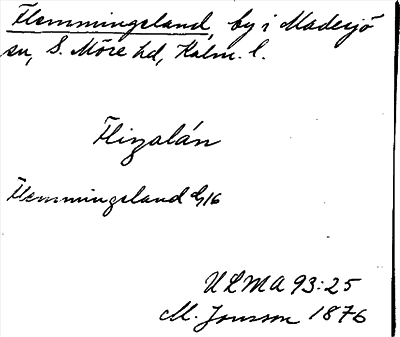 Flemmingsland, by i Madesjö
sn, S. Möre hd, Kalm. l.
Flizalán
Flemmingsland G16
ULMA 93:25
M. Jonsson 1876